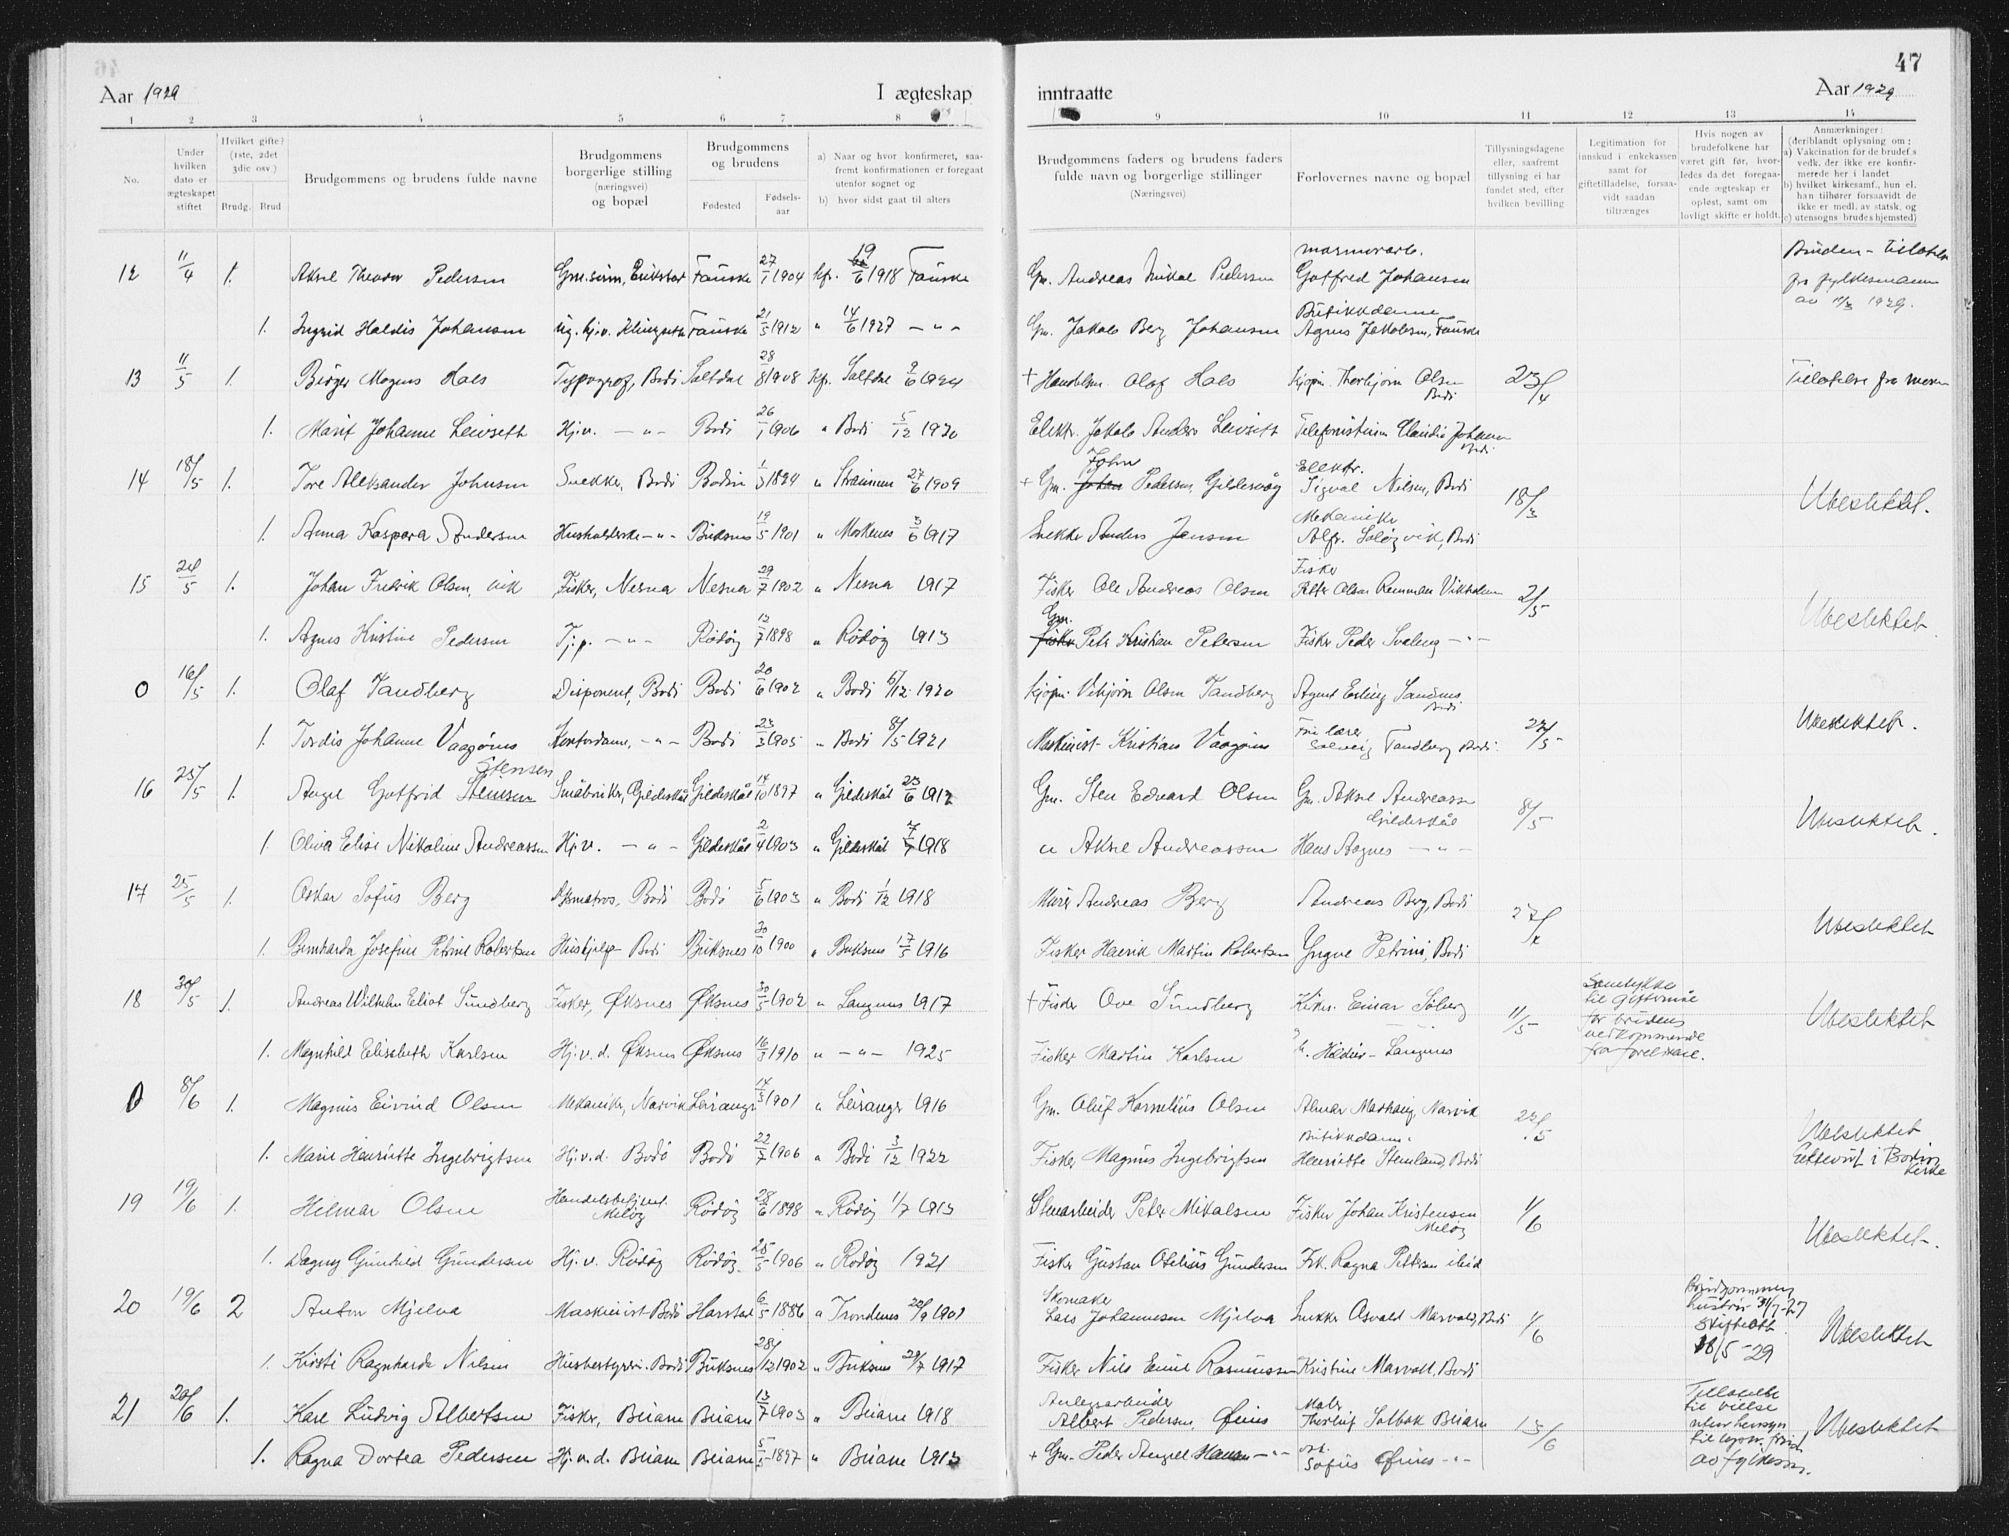 47
Aar 1929 I ægteskap inntraatte Aar 1929
1 2 3 4 5 6 7 8 9 10 11 12 13 14
No.
Under hvilken dato er ægteskapet stiftet
Hvilket gifte? (1ste, 2det 3die osv.)
Brudg. Brud
Brudgommens og brudens fulde navne
Brudgommens borgerlige stilling (næringsvei) og bopæl
Brudgommens og brudens
Fødested Fødsels-aar
a) Naar og hvor konfirmeret, saa-fremt konfirmationen er foregaat utenfor sognet og
b) hvor sidst gaat til alters
Brudgommens faders og brudens faders fulde navn og borgerlige stillinger
(Næringsvei)
Forlovernes navne og bopæl
Tillysningsdagene eller, saafremt tillysning ei har fundet sted, efter hvilken bevilling
Legitimation for innskud i enkekassen samt for giftetilladelse, forsaa-vidt saadan tiltrænges
Hvis nogen av brudefolkene har været gift før, hvor-ledes da det foregaa-ende ægteskap er opløst, samt om lovligt skifte er holdt.
Anmærkninger: (deriblandt oplysning om:
a) Vakcination for de brudef.s vedk. der ikke ere konfir-merede her i landet
b) hvilket kirkesamf., hun el. han tilhører forsaavidt de ikke er medl. av statsk. og
c) utensogns brudes hjemsted)
12 11/4 1. Aksel Theodor Pedersen Gm.sønn, Erikstad Fauske 27/1 1904 kf. 19/6 1918 Fauske Gm. Andreas Mikal Pedersen marmorarb. Gotfred Johansen Bruden - Tillatelse fra fylkesmann av 11/3 1929.
1. Ingrid Haldis Johansen Fauske 21/5 1912 " 14/6 1927 - " - Gm. Jakob Berg Johansen Butikkdame Agnes Jakobsen, Fauske
13 11/5 1. Birger Mogens Hals Typograf, Bodø Saltdal 28/8 1908 kf. Saltdal 9/6 1924 + Handelsm. Olaf Hals Kjøpm. Thorbjørn Olsen Bodø 23/4 Tillatelse fra moren
1. Marit Johanne Leivseth Hj.v. - " - Bodø 26/1 1906 " Bodø 5/12 1920 Elektr. Jakob Anders Leivseth Telefonistinne Claudia Johansen Bodø.
14 18/5 1. Tore Aleksander Johnsen Snekker, Bodø Bodin 1/3 1894 " Straumen 27/6 1909 + Gm. John Pedersen, Gildesvåg Elektr. Sigval Nilsen, Bodø 18/3 Ubeslektet.
1. Anna Kaspara Andersen Husholderske - " - Buksnes 19/5 1901 " Moskenes 3/6 1917 Snekker Anders Jensen Mekaniker Alfr. Soløyvik, Bodø
15 24/5 1. Johan Fredrik Olsen, vik Fisker, Nesna Nesna 29/7 1902 " Nesna 1917 Fisker Ole Andreas Olsen Fisker Peter Olsen Remman Vikholmen 2/5 Ubeslektet.
1. Agnes Kristine Pedersen Tj.p. - " - Rödöy 12/7 1898 " Rödöy 1913 Gm. Petr Kristian Petersen Fisker Peder Svaleng - " -
0 16/5 1. Olaf Tandberg Disponent, Bodø Bodø 20/6 1902 " Bodø 5/12 1920 Kjøpm. Vibjørn Olsen Tandberg Agent Erling Sandnes Bodø
1. Tordis Johanne Vaagønes Kontordame, - " - Bodø 23/3 1905 " Bodø 8/5 1921 Maskinist Kristian Vaagønes Frk lærer Solveig Tandberg Bodø. Ubeslektet.
16 25/5 1. Angel Gotfrid Stensen Småbruker, Gildeskål Gildeskål 14/10 1897 " Gildeskål 23/6 1912 Gm. Sten Edvard Olsen Gm. Aksel Andreassen Gildeskål 8/5 Ubeslektet.
1. Oliva Elise Nikoline Andreassen Hj.v. - " - Gildeskål 2/4 1903 " Gildeskål 1918 " Aksel Andreassen Hans Aagnes - " -
17 25/5 1. Oskar Sofus Berg Bodø Bodø 5/6 1903 " Bodø 1/12 1918 Murer Andreas Berg Andreas Berg, Bodø Ubeslektet
1. Bernharda Josefine Petrine Robertsen Hushjelp - Bodø Buksnes 30/10 1900 " Buksnes 17/5 1916 Fisker Henrik Martin Robertsen Yngve Petrini, Bodø
18 30/5 1. Andreas Wilhelm Eliot Sundberg Fisker, Øksnes Øksnes 30/5 1902 " Langenes 1917 + Fisker Ove Sundberg Einar Søberg 11/5 Samtykke til giftermåe for brudens vedkommende fra foreldrene. Ubeslektet
1. Magnhild Elisabeth Karlsen Hj.v.d. Øksnes Øksnes 16/3 1910 " - " - 1925 Fisker Martin Karlsen
0 8/6 1. Magnus Eivind Olsen Mekaniker, Narvik Leiranger 14/3 1901 " Leiranger 1916 Gm. Oluf Kornelius Olsen Almar Narvik 22/5
1. Marie Henriette Ingebrigtsen Hj.v.d. Bodø Bodø 22/7 1906 " Bodø 3/12 1922 Fisker Magnus Ingebrigtsen Butikkdame. Henriette Stenland, Bodø Ubeslektet Ektevid i Bodin kirke
19 19/6 1. Hilmar Olsen Handelsbetjent. Meløy Rödöy 28/6 1898 " Rödöy 1/7 1913 Stenarbeider Peter Mikalsen Fisker Johan Kristensen Meløy 1/6 Ubeslektet.
1. Dagny Gunhild Gundersen Hj.v. Rödöy Rödöy 25/5 1906 " Rödöy 1921 Fisker Gustav Otelius Gundersen Frk. Ragna Pettersen ibid
20 19/6 2 Anton Mjelva Maskinist Bodø Harstad 6/5 1886 " Trondenes 1901 Skomaker Lars Johannesen Mjelva Snekker Osvald Marvold, Bodø 1/6 Brudgommens hustru 31/7-27 Skifteatt. 18/5-29 Ubeslektet
1. Kirsti Ragnharda Nilsen Husbestyrer. Bodø Buksnes 28/12 1902 " Buksnes 29/7 1917 Fisker Nils Emil Rasmussen Kristine Marvoll, Bodø
21 20/6 1. Karl Ludvig Albertsen Fisker, Beiarn Beiarn 13/7 1903 " Beiarn 1918 Anleggsarbeider Albert Pedersen, Øines Maler Thorleif Solbak Beiarn 13/6 Tillatelse til vielse uten hensyn til lysn. frist av fylkesm. Ubeslektet
1. Ragna Dortea Pedersen Hj.v.d. Beiarn Beiarn 5/5 1897 " Beiarn 1913 + Gm. Peder Angell Hansen - " - Sofus Øines - " -